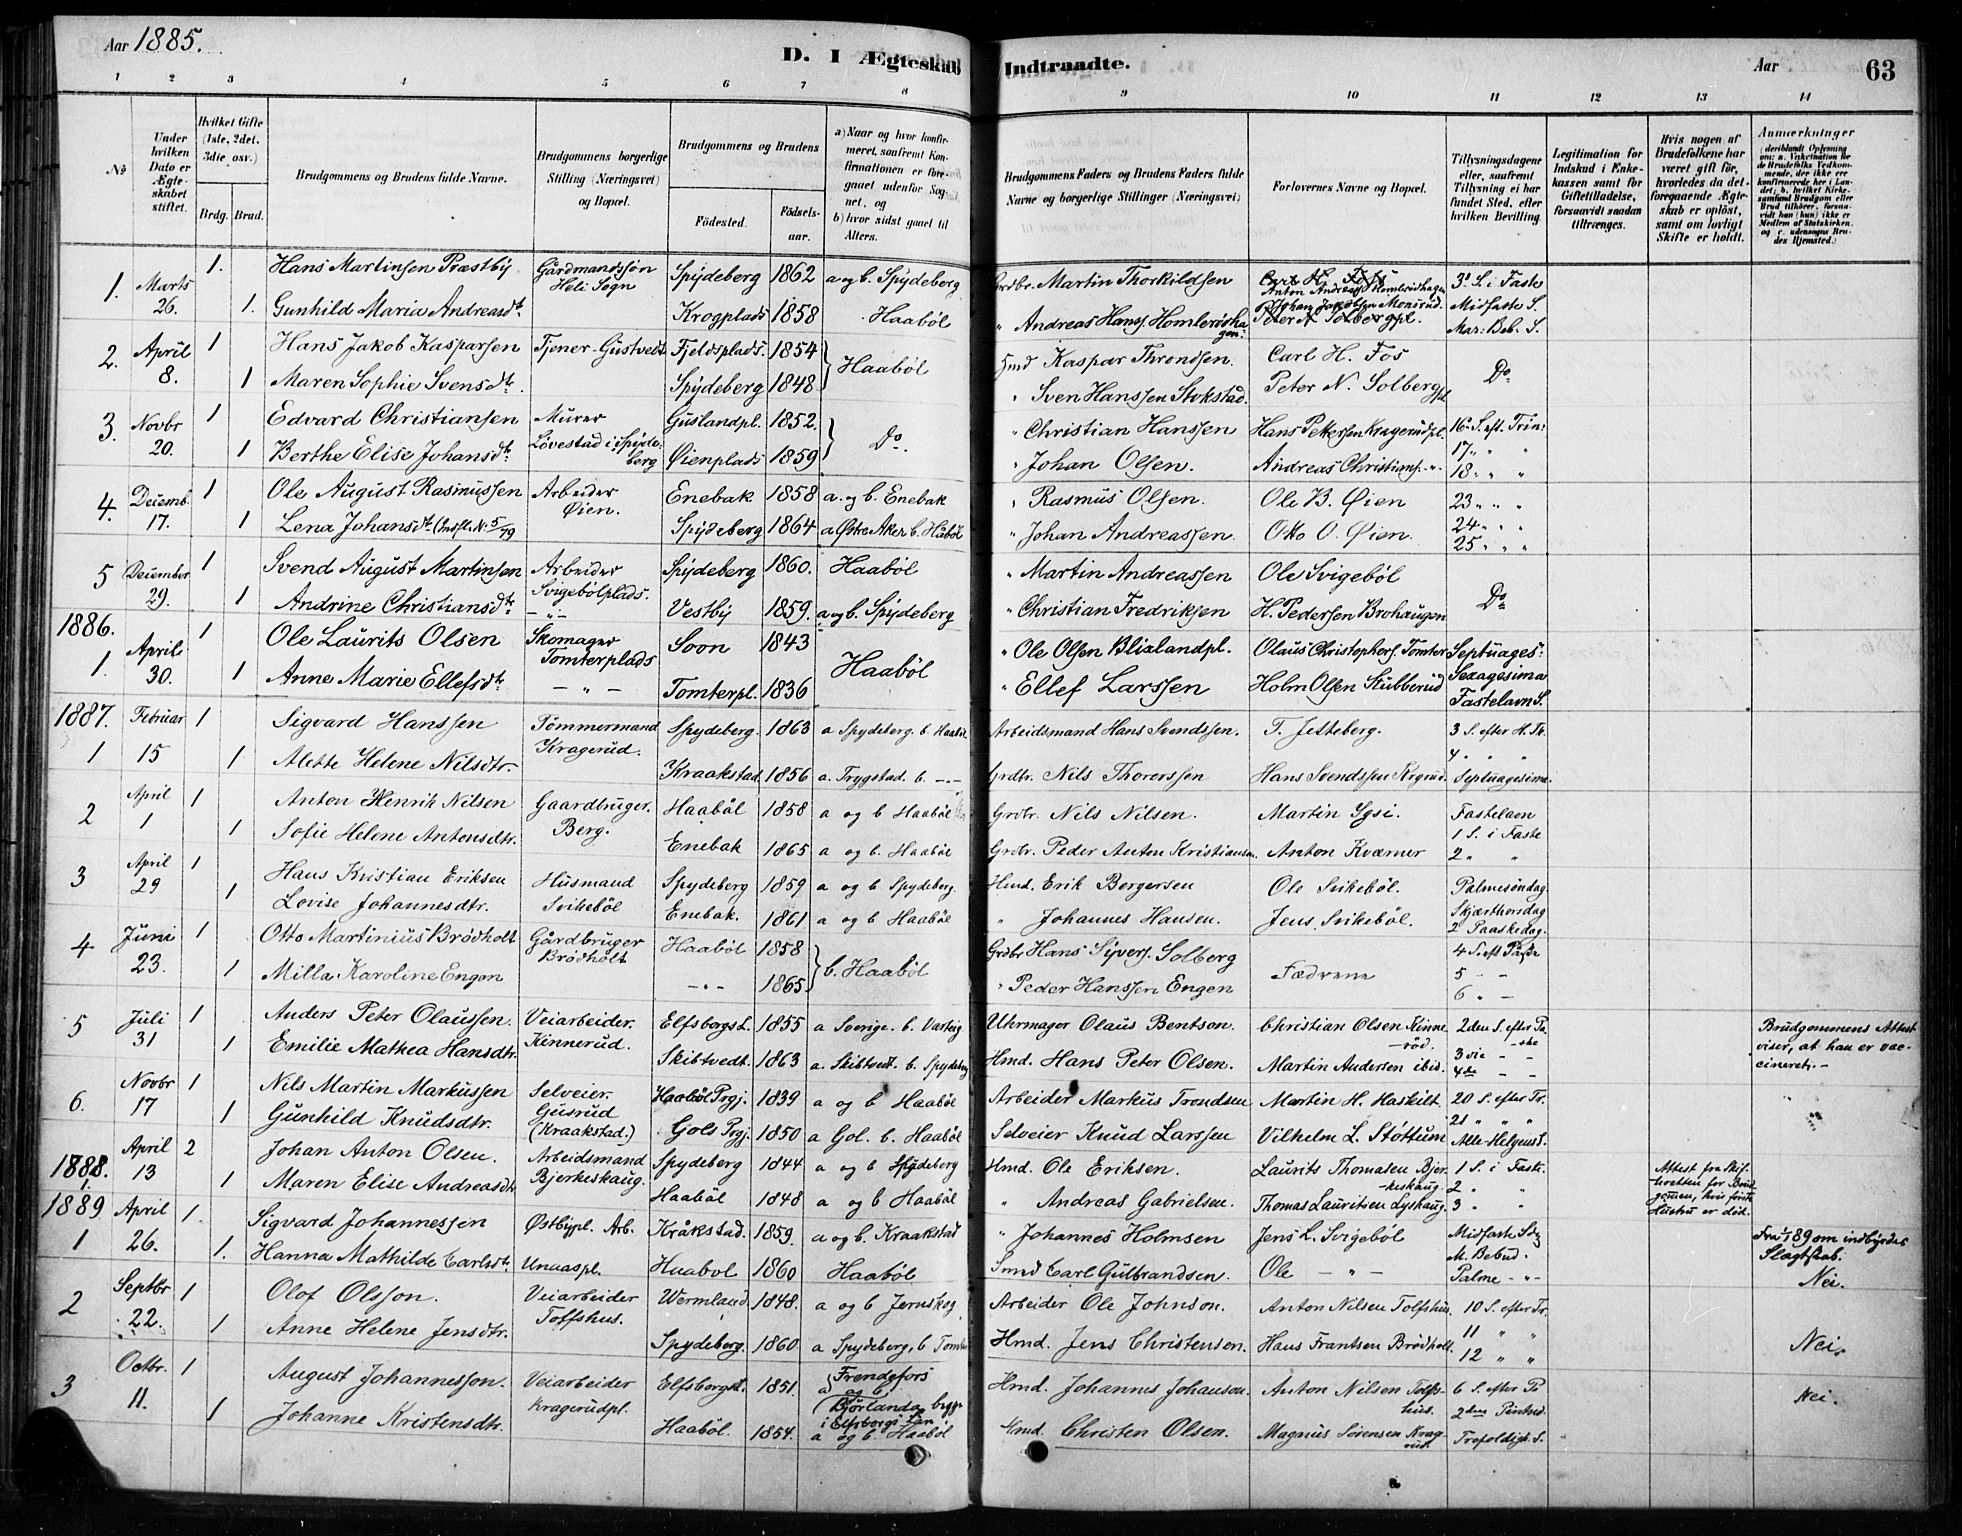 Aar 1885.
D. I Ægteskab Indtraadte.
Aar
63
1 2 3 4 5 6 7 8 9 10 11 12 13 14
No
Under hvilken Dato er Ægteskabet stiftet.
Hvilket Gifte (1ste, 2det, 3die osv.)
Brdg. Brud.
Brudgommens og Brudens fulde Navne.
Brudgommens borgerlige Stilling (Næringsvei) og Bopæl.
Brudgommens og Brudens
Födested.
Födselsaar.
a) Naar og hvor konfirmeret, saafremt Konfirmationen er foregaaet udenfor Sognet, og
b) hvor sidst gaaet til Alters.
Brudgommens Faders og Brudens Faders fulde Navne og borgerlige Stillinger (Næringsvei)
Forlovernes Navne og Bopæl.
Tillysningsdagene eller, saafremt Tillysning ei har fundet Sted, efter hvilken Bevilling.
Legitimation for Indskud i Enkekassen samt for Giftetilladelse, forsaavidt saadan tiltrænges.
Hvis nogen af Brudefolkene har været gift før, hvorledes da det foregaaende Ægteskab er oplöst, samt om lovligt Skifte er holdt.
Anmærkninger
1. Marts 26. 1. Hans Martinsen Præstby Gårdmandssön Heli Sogn Spydeberg 1862 a og b. Spydeberg Grdbr. Martin Thorkildsen Anton Andreas Homlerødhagen 3d S. i Faste
1. Gunhild Maria Andreasdt. Krogplads 1858 Haabøl " Andreas Hanss. Homlerødhagen. Johan Jacobsen Monsrud. Midfaste S. Mar. Beb. S.
2. April 8. 1 Hans Jakob Kasparsen Tjener Gustvedt Fjeldsplads. 1854 Haabøl Hmd Kaspar Throndsen. Carl H. Fos Do
1 Maren Sophie Svensdtr. Spydeberg 1848 " Sven Hanssen Stokstad. Peter N. Solbergpl.
3. Novbr 20. 1 Edvard Christiansen Murer Løvestad i Spydeberg Guslandpl. 1852. Do. " Christian Hanssen Hans Pettersen Kragerudpl. 16. S. eft. Trin:
1 Berthe Elise Johansdt. Øienplads 1859 " Johan Olsen. Andreas Christians. -"- 17 " " 18 " "
4. Decemb. 17. 1 Ole August Rasmussen Arbeider Øien. Enebak 1858 a. og b. Enebak " Rasmus Olsen. Ole B. Øien 23 " "
1 Lena Johansdt. (Indfl. N. 5/79 Spydeberg 1864 a Østre Aker b. Håbøl " Johan Andreassen. Otto O. Øien. 24 " " 25 " "
5 December 29. 1 Svend August Martinsen Arbeider Svigebølplads. Spydeberg 1860. Haabøl " Martin Andreassen Ole Svigebøl Do
1 Andrine Christiansdt. -"- Vestby 1859. a og b. Spydeberg " Christian Fredriksen H. Pedersen Brohaugen
1886.
1. April 30. 1 Ole Laurits Olsen Skomager Tomterplads Soon 1843 Haabøl " Ole Olsen Blixlandpl. Olaus Christophers. Tomter Septuages.
1 Anne Marie Ellefsdt. - " - Tomterpl. 1836 " Ellef Larssen Holm Olsen Stubberud Sexagesima Fastelavn S.
1887.
1 Februar 15 1 Sigvard Hanssen Tømmermand Kragerud. Spydeberg. 1863 a Spydeberg. b. Haabøl Arbeidsmand Hans Svendssen. T. Jetteberg. 3 S. efter H. Tr.
1 Alette Helene Nilsdtr. Kraakstad 1856 a. Trygstad. b. -"- Grdbr. Nils Thorerssen Hans Svendssen 4 " " Septuagesima.
2 April 1 1 Anton Henrik Nilsen Gaardbruger. Berg. Haabøl 1858 a og b Haabøl Grdbr. Nils Nilsen. Martin Ygsi. Fastelavn
1 Sofie Helene Antonsdtr. Enebak 1865 a og b. Haabøl Grdbr. Peder Anton Kristiansen Anton Kværner 1 S. i Faste 2 " "
3 April 29 1 Hans Kristian Eriksen Husmand Svikebøl Spydeberg 1859 a og b Spydeberg. Hmd. Erik Bergersen Ole Svikebøl. Palmesøndag
1 Lovise Johannesdtr. Enebak. 1861 a og b Haabøl " Johannes Hansen. Jens Svikebøl. Skjærthorsdag 2 Paaskedag.
4 Juni 23. 1 Otto Martinius Brødholt Gårdbruger Brödholt Haabøl 1858 b. Haabøl Grdbr Hans Syvers. Solberg Fædrene 4 S. eft Påske
1 Milla Karoline Engen -"- 1865 " Peder Hanssen Engen 5 " - 6 " -
5 Juli 31 1 Anders Peter Olaussen. Veiarbeider. Kinnerud. Elfsborgs L. 1855 a Sverige. b. Varteig Uhrmager Olaus Bentson. Christian Olsen Kinnerød. 2den S. efter Paaske Brudgommens Attest viser, at han er vaccineret. -
1 Emilie Mathea Hansdtr. Skibtvedt. 1863 a. Skibtvedt. b. Spydeberg Hmd. Hans Peter Olsen. Martin Andersen ibid. 3die - - 4de - -
6. Novbr 17 1 Nils Martin Markussen Selveier. Gusrud (Kraakstad.) Haabøl Prgj. 1839 a og b Haabøl Arbeider Markus Trondsen Martin H. Haskilt. 20 S. efter Tr.
1 Gunhild Knudsdtr. Gols Prgj. 1850 a Gol. b. Haabøl Selveier Knud Larssen Vilhelm L. Støttum 21 " " Alle-Helgens S.
1888.
1. April 13 2 Johan Anton Olsen. Arbeidsmand Bjerkeskaug. Spydeberg 1844 a og b Spydeberg Hmd. Ole Eriksen. Laurits Thomasen Bjerkeskaug 1 S. i Faste. Attest fra Skifteretten for Brudgomen, hvis første Hustru er död.
1 Maren Elise Andreasdtr Haabøl 1848 a og b Haabøl " Andreas Gabrielsen. Thomas Lauritsen Lyshaug. 2 " " 3 " "
1889
1 April 26. 1 Sigvard Johannessen Østbypl. Arb. Kråkstad. 1859. a og b. Kraakstad " Johannes Holmsen Jens L. Svigebøl Midfaste Sø Fra 1/1 89 om indbyrdes Slagtskab.
1. Hanna Mathilde Carlsdt. Unaaspl. Haabol 1860 Haabøl Smed Carl Gulbrandsen. Ole - " - M. Bebud. Palme -"- Nei.
2 Septbr 22. 1 Olof Olsson. Veiarbeider Toffshus. Wermland 1848. a og b Jernskog Arbeider Ole Johnson. Anton Nilsen Tolfshus. 10 S. efter Tr.
1 Anne Helene Jensdtr. Spydeberg. 1860. a Spydeberg, b Tomter Hmd. Jens Christensen. Hans Frantsen Brødholt. 11 " " 12 " " Nei.
3 Octbr. 11. 1 August Johannesson. Veiarbeider Kragerudpl. Elfsborgsl. 1851. a Frendefors og b. Bjørlanda begge i Elfsborgs Län. Hmd. Johannes Johanson. Anton Nilsen Tolfshus. 6 S. efter P 2den Pintsed. Nei.
1 Johanne Kristensdtr. Haabøl. 1854. a og b. Haabøl Hmd. Christen Olsen. Magnus Sörensen Kragrud. Trefoldigh. S.